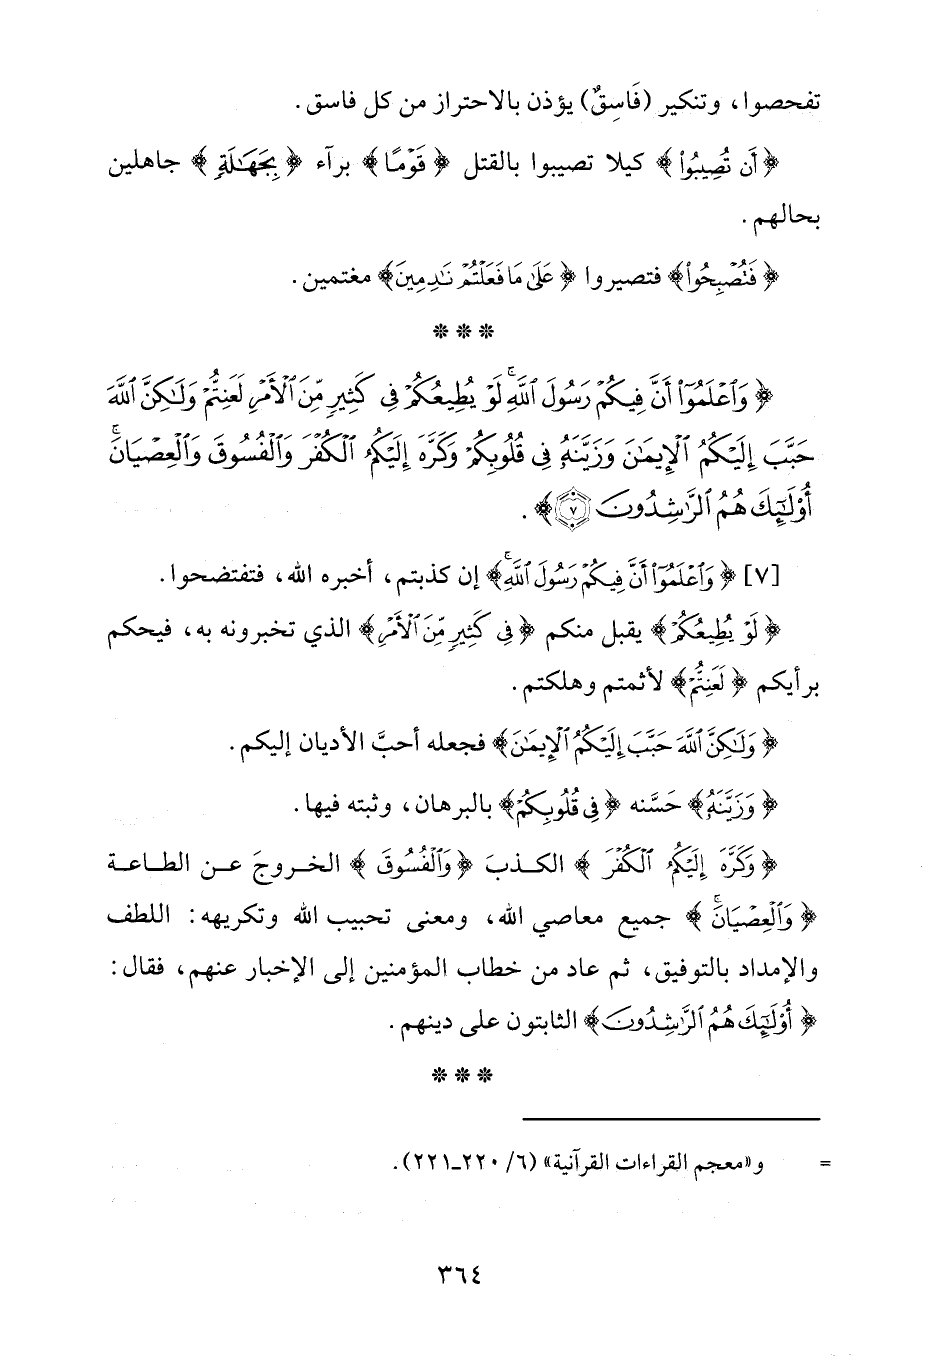 تفحصوا، وتنكير (فَاسِقٌ) يؤذن بالاحتراز من كل فاسق.
﴿أَن تُصِيبُوا۟﴾ كيلا تصيبوا بالقتل ﴿قَوْمًۢا﴾ برآء ﴿بِجَهَـٰلَةٍ﴾ جاهلين
بحالهم.
﴿فَتُصْبِحُوا۟﴾ فتصيروا ﴿عَلَىٰ مَا فَعَلْتُمْ نَـٰدِمِينَ﴾ مغتمين.
* * *
﴿وَٱعْلَمُوٓا۟ أَنَّ فِيكُمْ رَسُولَ ٱللَّهِ ۚ لَوْ يُطِيعُكُمْ فِى كَثِيرٍ مِّنَ ٱلْأَمْرِ لَعَنِتُّمْ وَلَـٰكِنَّ ٱللَّهَ
حَبَّبَ إِلَيْكُمُ ٱلْإِيمَـٰنَ وَزَيَّنَهُۥ فِى قُلُوبِكُمْ وَكَرَّهَ إِلَيْكُمُ ٱلْكُفْرَ وَٱلْفُسُوقَ وَٱلْعِصْيَانَ ۚ
أُو۟لَـٰٓئِكَ هُمُ ٱلرَّٰشِدُونَ ٧﴾.
[٧] ﴿وَٱعْلَمُوٓا۟ أَنَّ فِيكُمْ رَسُولَ ٱللَّهِ ۚ﴾ إن كذبتم، أخبره الله، فتفتضحوا.
﴿لَوْ يُطِيعُكُمْ﴾ يقبل منكم ﴿فِى كَثِيرٍ مِّنَ ٱلْأَمْرِ﴾ الذي تخبرونه به، فيحكم
برأيكم ﴿لَعَنِتُّمْ﴾ لأثمتم وهلكتم.
﴿وَلَـٰكِنَّ ٱللَّهَ حَبَّبَ إِلَيْكُمُ ٱلْإِيمَـٰنَ﴾ فجعله أحبَّ الأديان إليكم.
﴿وَزَيَّنَهُۥ﴾ حَسَّنه ﴿فِى قُلُوبِكُمْ﴾ بالبرهان، وثبته فيها.
﴿وَكَرَّهَ إِلَيْكُمُ ٱلْكُفْرَ﴾ الكذبَ ﴿وَٱلْفُسُوقَ﴾ الخروجَ عن الطاعة
﴿وَٱلْعِصْيَانَ ۚ﴾ جميع معاصي الله، ومعنى تحبيب الله وتكريهه: اللطف
والإمداد بالتوفيق، ثم عاد من خطاب المؤمنين إلى الإخبار عنهم، فقال:
﴿أُو۟لَـٰٓئِكَ هُمُ ٱلرَّٰشِدُونَ﴾ الثابتون على دينهم.
* * *
= و«معجم القراءات القرآنية» (٦/ ٢٢٠-٢٢١).
٣٦٤